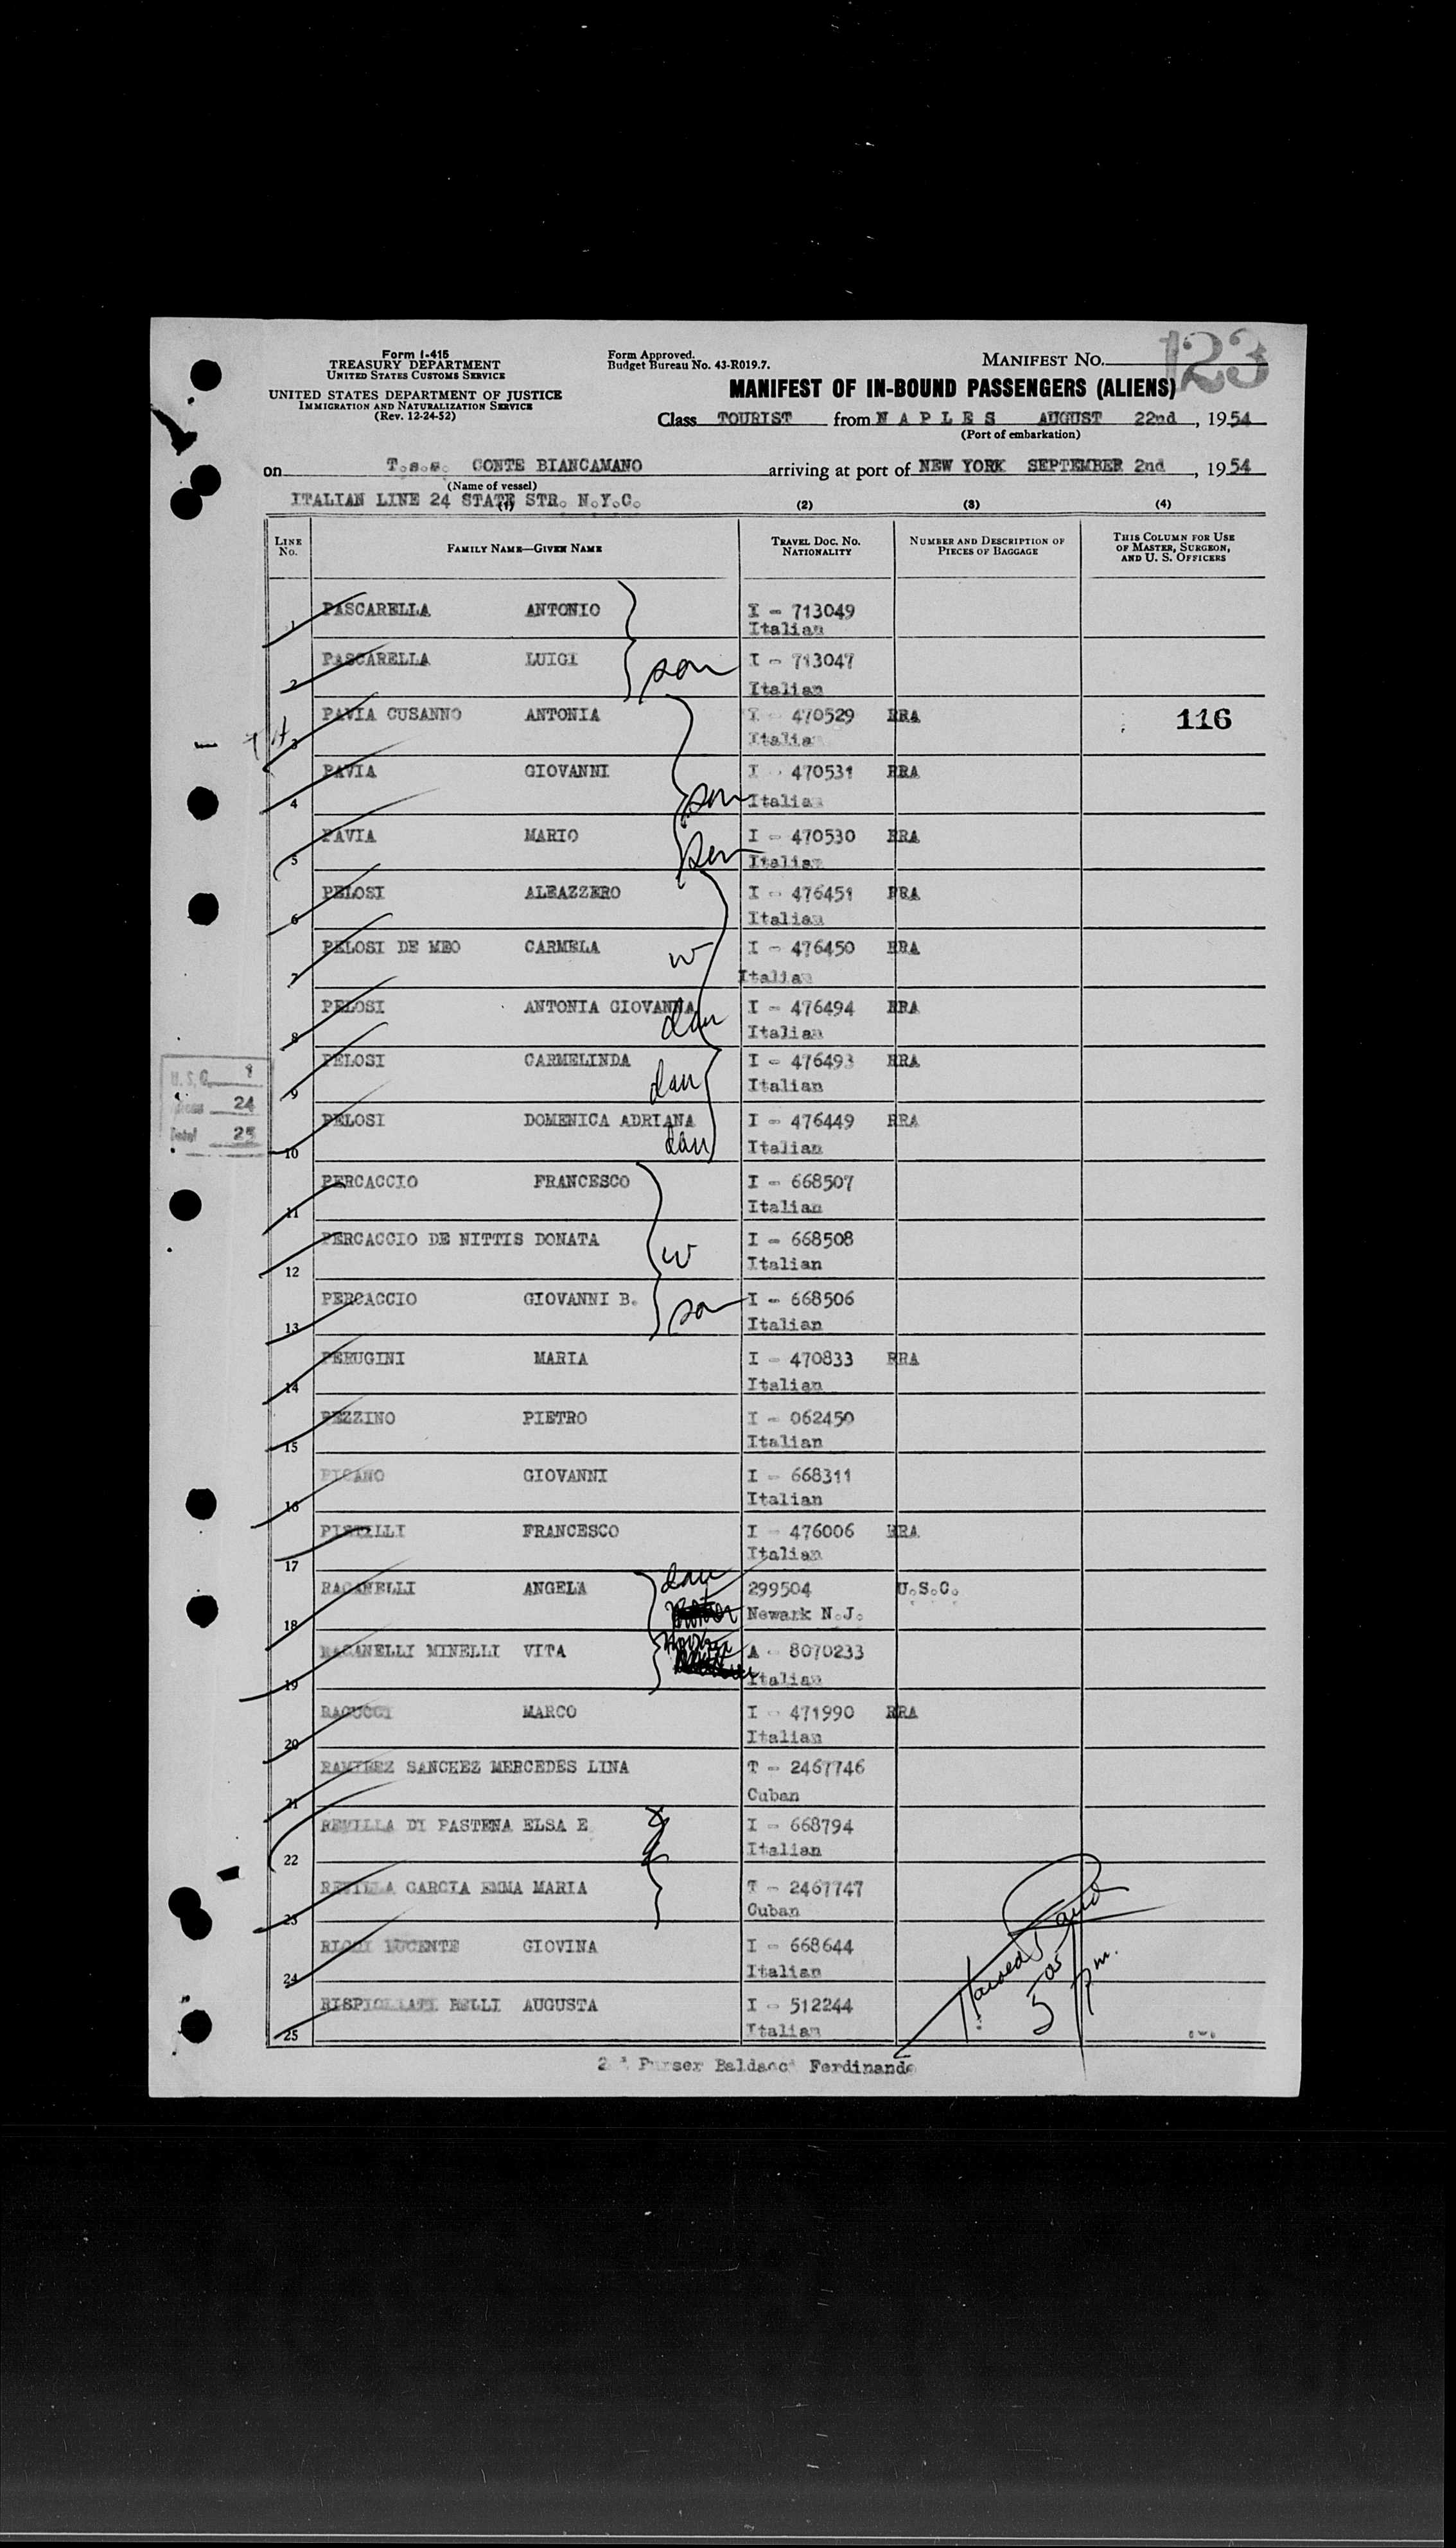 Form I-415
TREASURY DEPARTMENT
UNITED STATES CUSTOMS SERVICE
UNITED STATES DEPARTMENT OF JUSTICE
IMMIGRATION AND NATURALIZATION SERVICE
(Rev. 12-24-52)
Form Approved.
Budget Bureau No. 43-R019.7.
MANIFEST NO.
123
MANIFEST OF IN-BOUND PASSENGERS (ALIENS)
Class TOURIST from N A P L E S AUGUST 22nd, 1954
(Port of embarkation)
on T.s.s. CONTE BIANCAMANO arriving at port of NEW YORK SEPTEMBER 2nd, 1954
(Name of vessel)
ITALIAN LINE 24 STATE STR. N.Y.C.
(1) (2) (3) (4)
LINE No. FAMILY NAME—GIVEN NAME TRAVEL DOC. NO. NATIONALITY NUMBER AND DESCRIPTION OF PIECES OF BAGGAGE THIS COLUMN FOR USE OF MASTER, SURGEON, AND U. S. OFFICERS
1 PASCARELLA ANTONIO I - 713049
Italian
2 PASCARELLA LUIGI son I - 713047
Italian
3 PAVIA CUSANNO ANTONIA I - 470529 RRA 116
Italian
4 PAVIA GIOVANNI son I - 470531 RRA
Italian
5 PAVIA MARIO son I - 470530 RRA
Italian
6 PELOSI ALEAZZERO I - 476451 RRA
Italian
7 PELOSI DE MEO CARMELA w I - 476450 RRA
Italian
8 PELOSI ANTONIA GIOVANNA dau I - 476494 RRA
Italian
9 PELOSI CARMELINDA dau I - 476493 RRA
Italian
10 PELOSI DOMENICA ADRIANA dau I - 476449 RRA
Italian
U.S.C. 1
24
Total 25
11 PERCACCIO FRANCESCO I - 668507
Italian
12 PERCACCIO DE NITTIS DONATA w I - 668508
Italian
13 PERCACCIO GIOVANNI B. son I - 668506
Italian
14 PERUGINI MARIA I - 470833 RRA
Italian
15 PEZZINO PIETRO I - 062450
Italian
16 PICANO GIOVANNI I - 668311
Italian
17 PISTILLI FRANCESCO I - 476006 RRA
Italian
18 RACANELLI ANGELA dau 299504 U.S.C.
Newark N.J.
19 RACANELLI MINELLI VITA A - 8070233
Italian
20 RAGUCCI MARCO I - 471990 RRA
Italian
21 RAMIREZ SANCHEZ MERCEDES LINA T - 2467746
Cuban
22 REVILLA DI PASTENA ELSA E I - 668794
Italian
23 REVILLA GARCIA EMMA MARIA T - 2467747
Cuban
24 RICCI LUCENTE GIOVINA I - 668644
Italian
25 AUGUSTA I - 512244
Italian
5 05 pm.
Purser Ferdinando